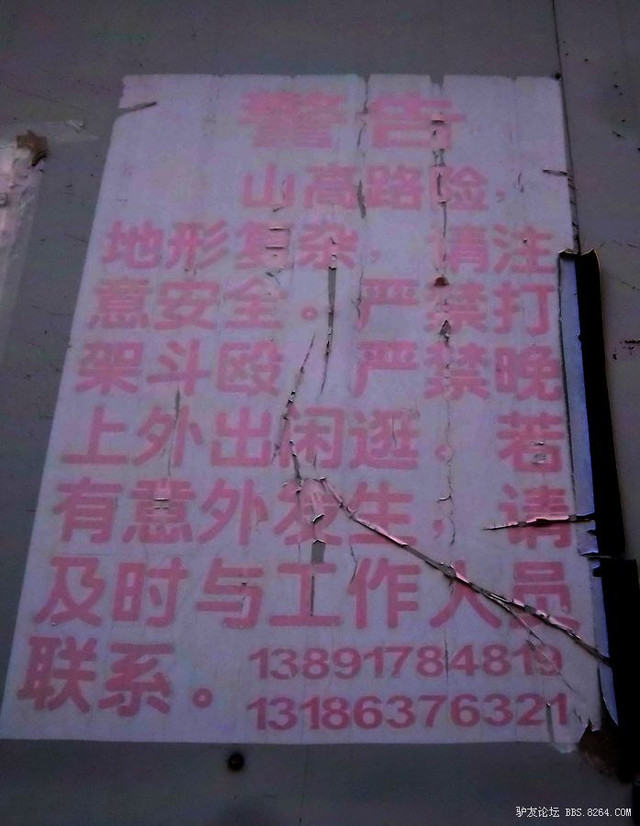 警告
山高路险，
地形复杂，请注
意安全。严禁打
架斗殴，严禁晚
上外出闲逛。若
有意外发生，请
及时与工作人员
联系。13891784819
13186376321
驴友论坛 BBS.8264.COM